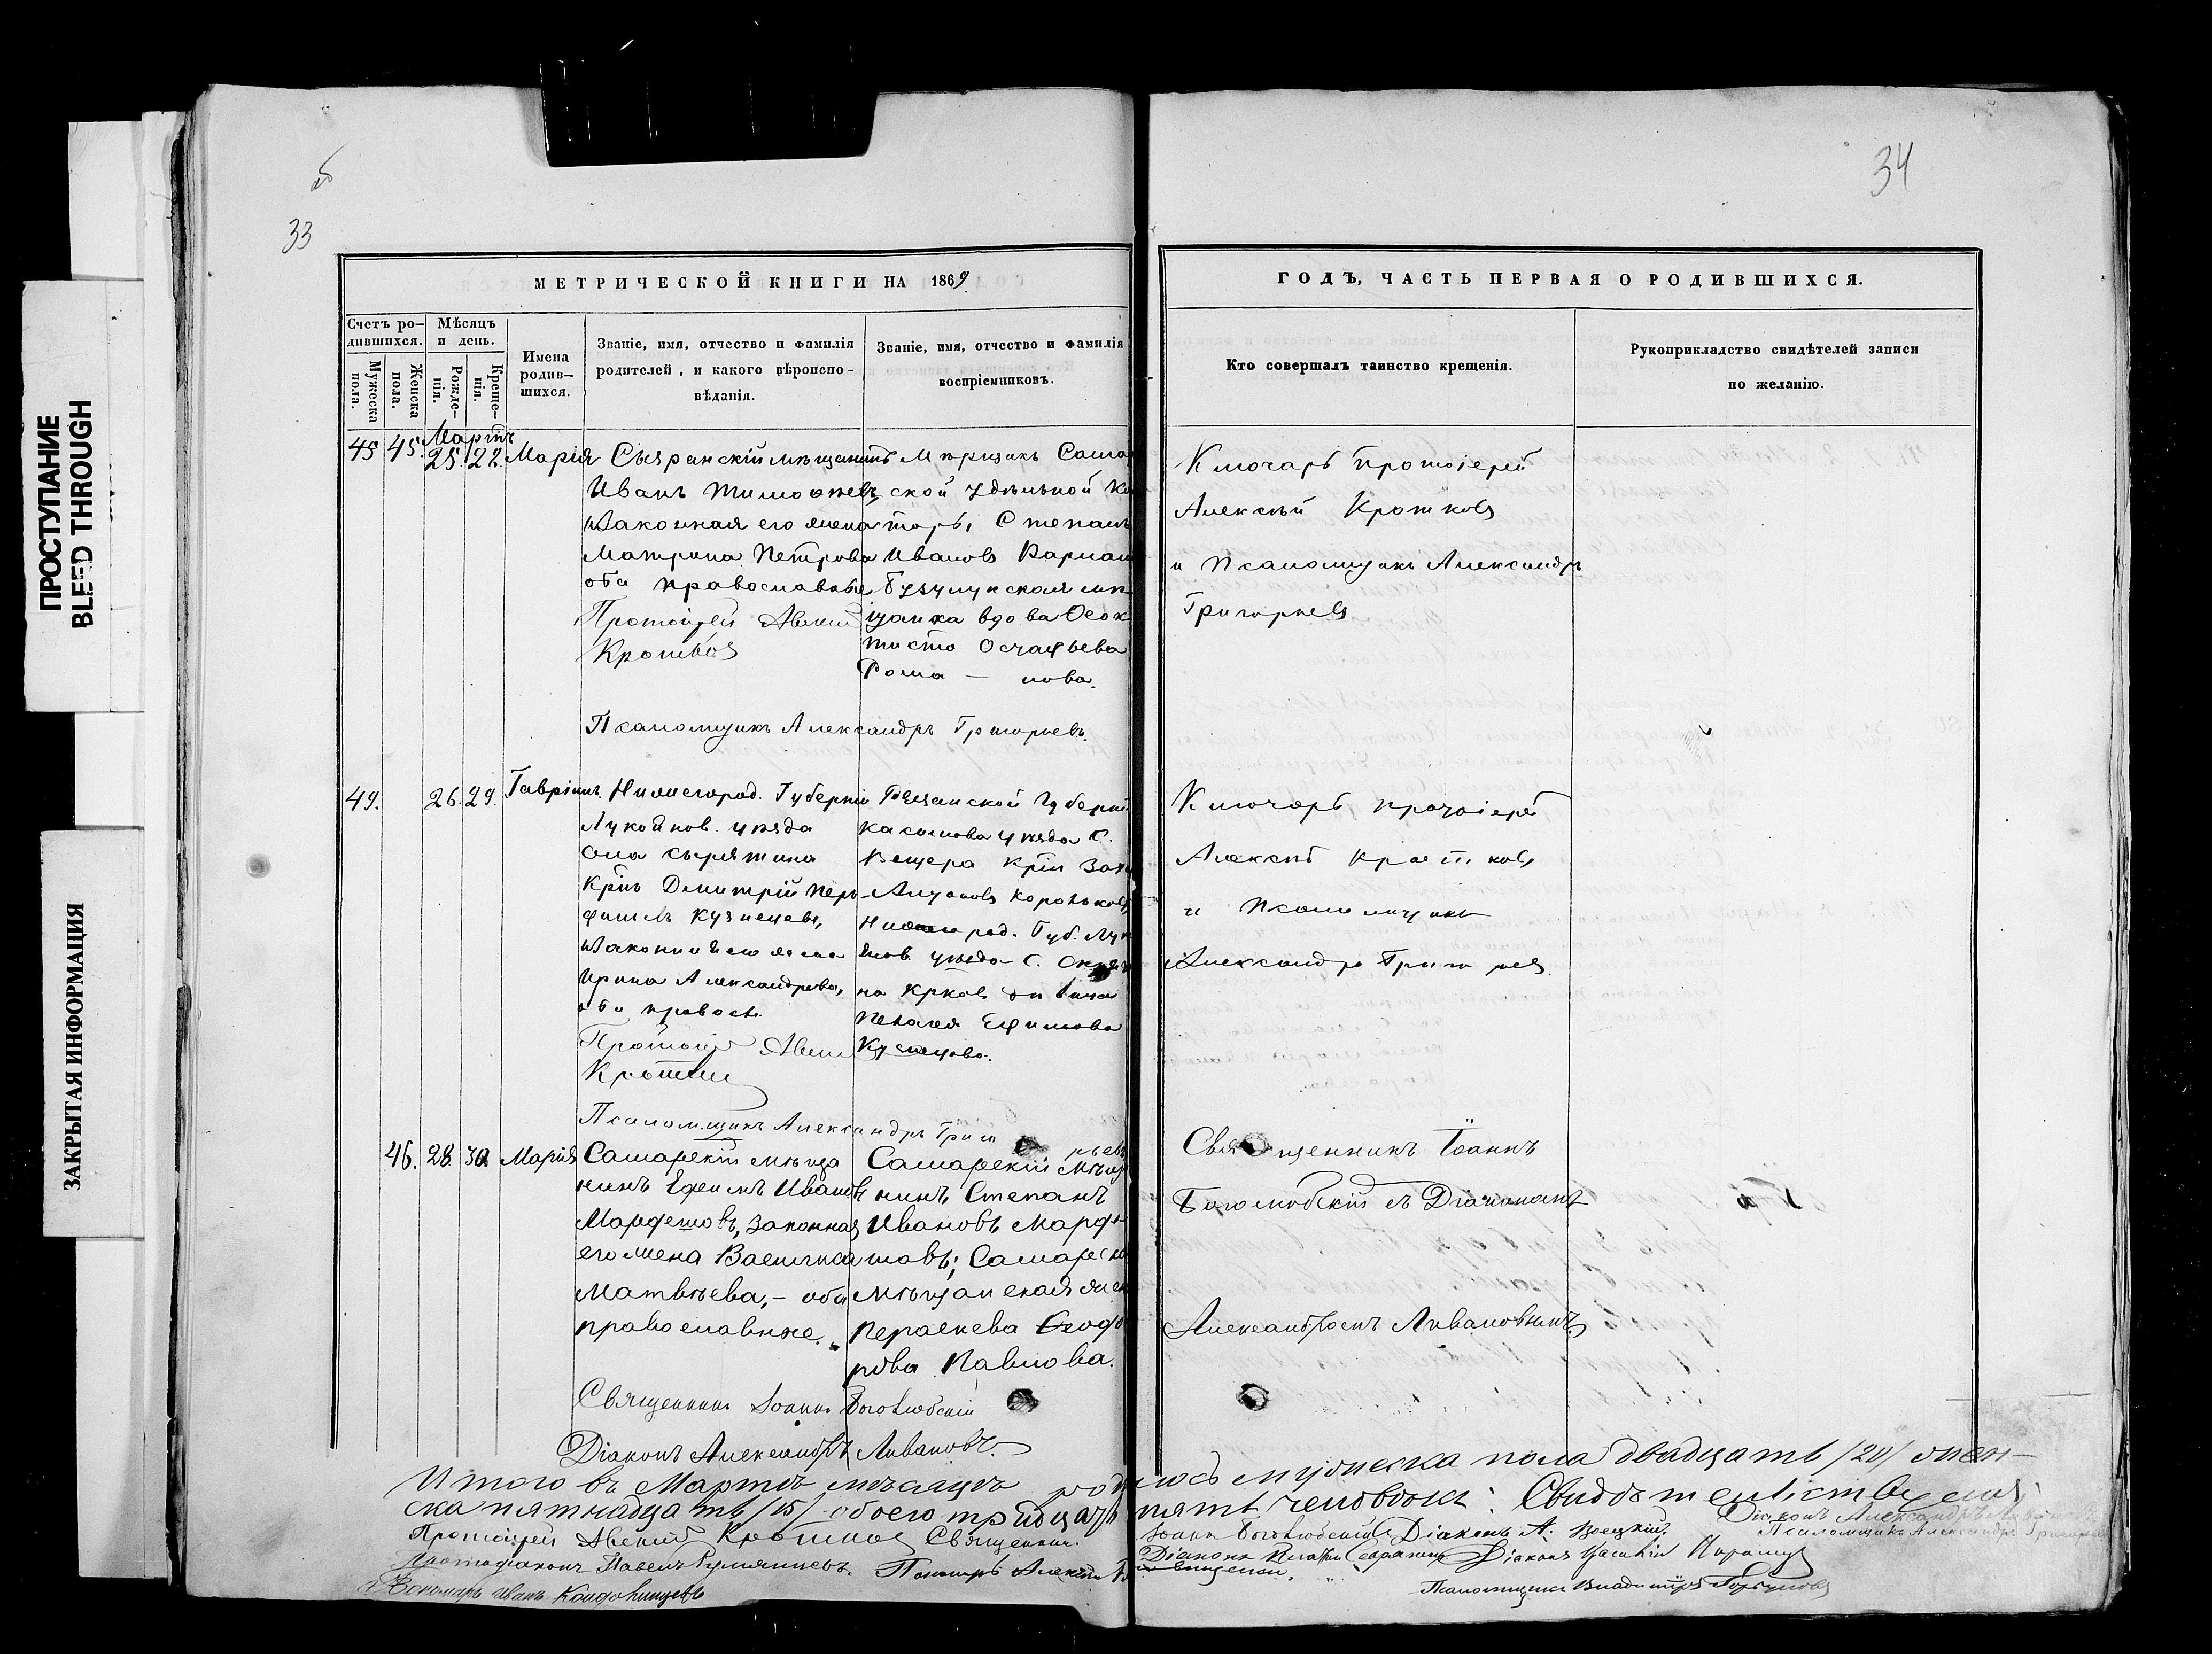 ПРОСТУПАНИЕ
BLEED THROUGH
ЗАКРЫТАЯ ИНФОРМАЦИЯ
33
34
МЕТРИЧЕСКОЙ КНИГИ НА 1869
ГОДЪ, ЧАСТЬ ПЕРВАЯ О РОДИВШИХСЯ.
Счетъ ро-
дившихся.
Мужеска
пола.
Женска
пола.
Мѣсяцъ
и день.
Рожде-
нія.
Креще-
нія.
Имена
родив-
шихся.
Званіе, имя, отчество и фамилія
родителей, и какого вѣроиспо-
вѣданія.
Званіе, имя, отчество и фамилія
воспріемниковъ.
Кто совершалъ таинство крещенія.
Рукоприкладство свидѣтелей записи
по желанію.
Мартъ
45 45. 25. 28. Марія
Сызранскій мѣщанинъ
Иванъ Тимоѳеевъ,
законная его жена
Матрона Петрова
оба православные
Протоіерей Алексій
Кротковъ
Мѣрщикъ Сама
ской удѣльной Ко
торы, Степанъ
Ивановъ
Бузулукская мѣ
щанка вдова Ѳеок
тиста
Рома — нова.
Псаломщикъ Александръ Григорьевъ.
Ключарь протоіерей
Алексѣй Кротковъ
и Псаломщикъ Александръ
Григорьевъ
49. 26. 29. Гавріилъ.
Нижегород. Губерніи
Лукоянов. уѣзда
села
Крнъ Димитрій Пер-
филовъ Кузнецовъ,
законная его жена
Ирина Александрова,
оба правосл.
Протоіер Алексій
Кротковъ
Рязанской Губерніи
Касимова уѣзда С.
Крнъ
Корольковъ
род. Губ. Лук
янов. уѣзда С.
на Крков. дѣвица
Пелагея Ефимова
Кузнецова.
Псаломщикъ Александръ Григо рьевъ
Ключарь протоіерей
Алексѣй Кротковъ
и Псаломщикъ
Александръ Григорьев.
46. 28. 30 Марія
Самарскій мѣща
нинъ Ефимъ Ивановъ
Марфешовъ, законная
его жена Василиса
Матвѣева, - оба
православные.
Самарскій мѣща
нинъ Степанъ
Ивановъ Марфе
шовъ; Самарска
мѣщанская жен
Параскева Ѳеодо
рова Павлова.
Священникъ Іоаннъ Боголюбскій
Діаконъ Александръ Ливановъ.
Священникъ Іоаннъ
Боголюбскій съ Діакономъ
Александромъ Ливановымъ
Итого въ Мартѣ мѣсяцѣ родилось мужеска пола двадцать /20/ жен-
ска пятнадцать /15/ обоего тридцать пять человѣкъ. Свидѣтельствуемъ:
Протоіерей Алексій Кротковъ Священникъ Іоаннъ Боголюбскій Діаконъ А. Діаконъ Александръ Ливановъ
Псаломщикъ Александръ Григорьевъ
Протодіаконъ Павелъ Румянцевъ. Пономарь Алексѣй
Діаконъ Діаконъ
Пономарь Иванъ
Псаломщикъ Владиміръ